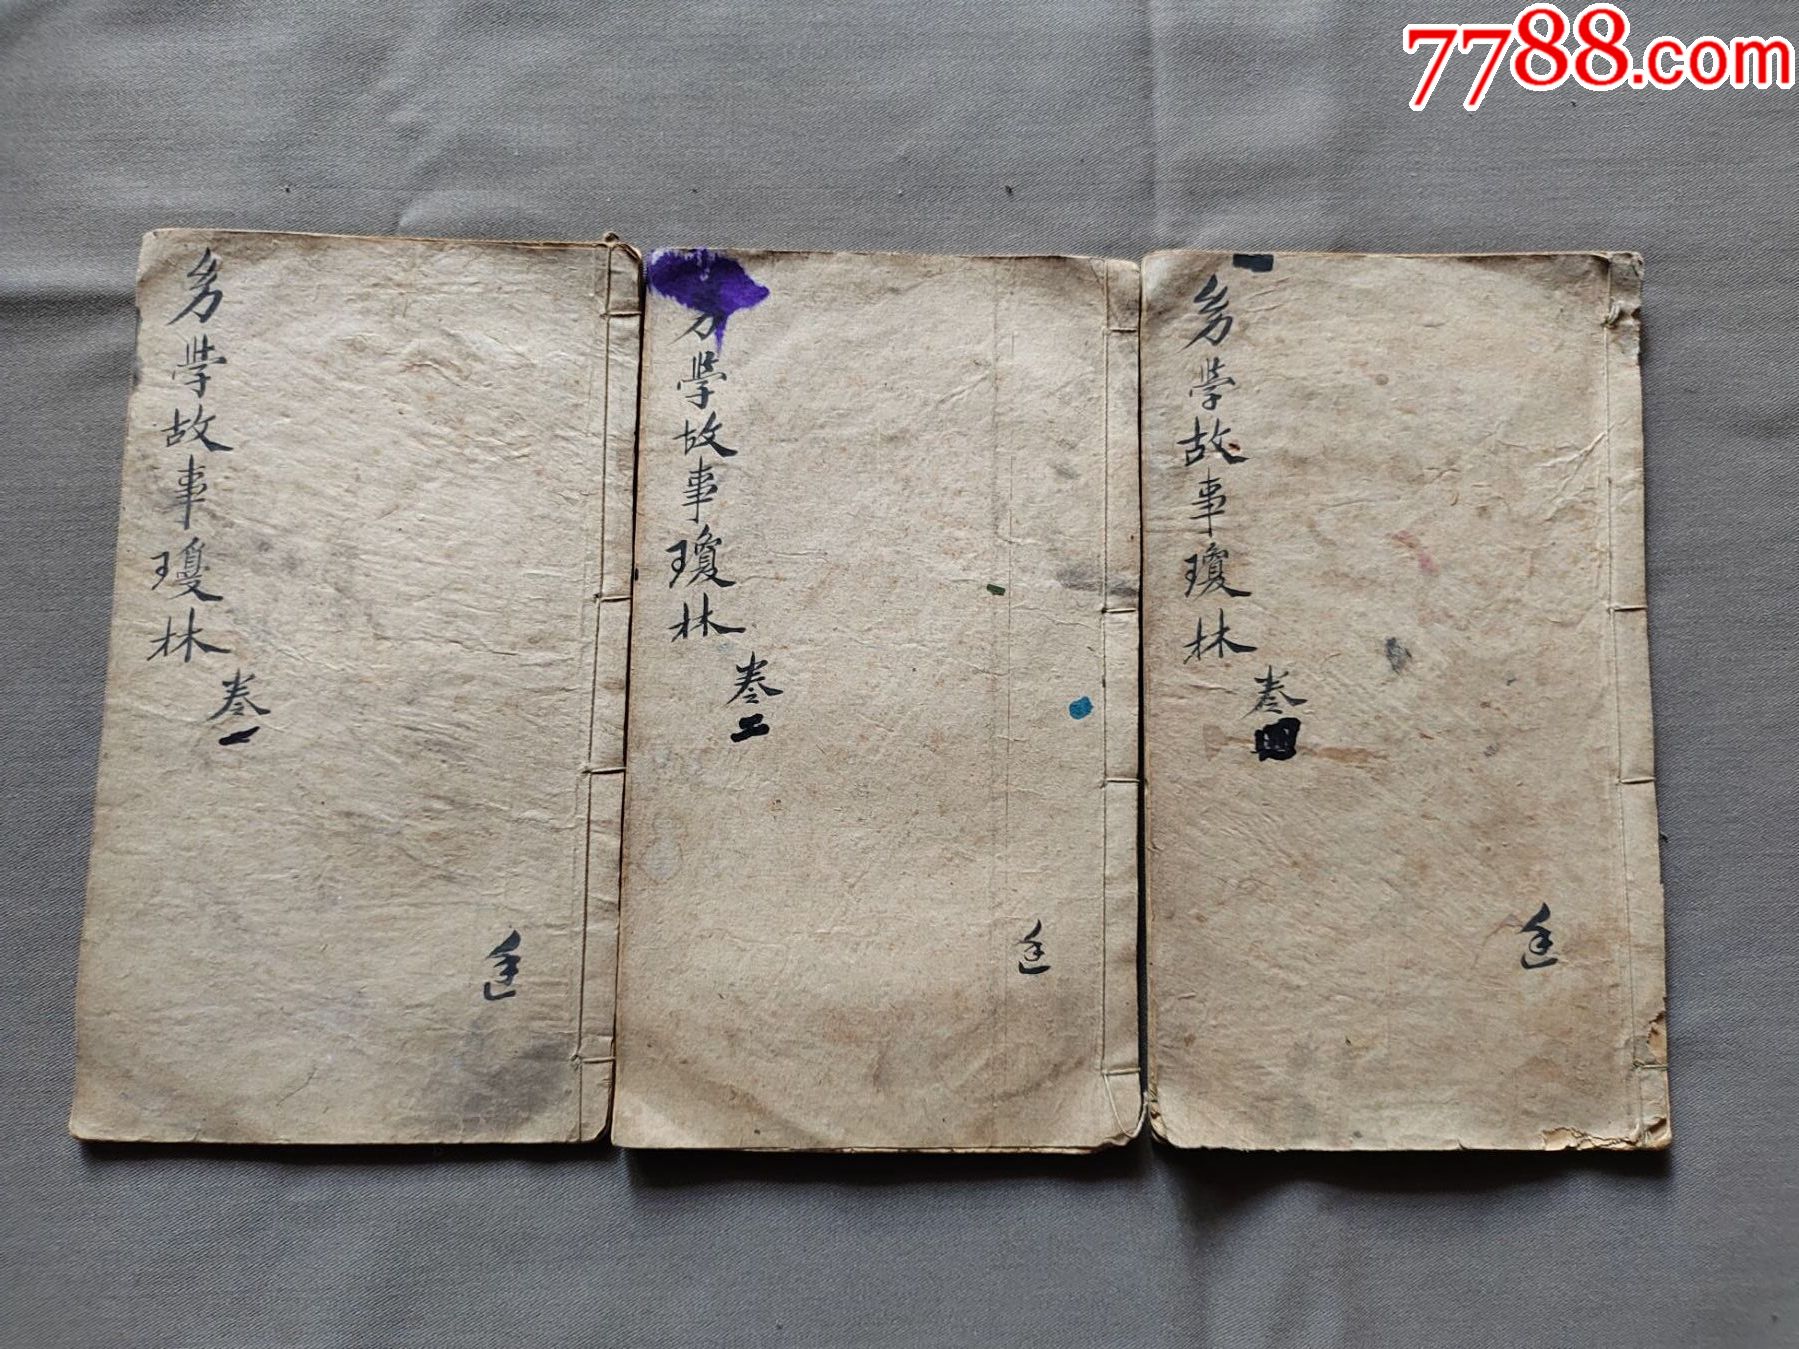 7788.com
幼學故事瓊林
卷一
幼學故事瓊林
卷二
幼學故事瓊林
卷四